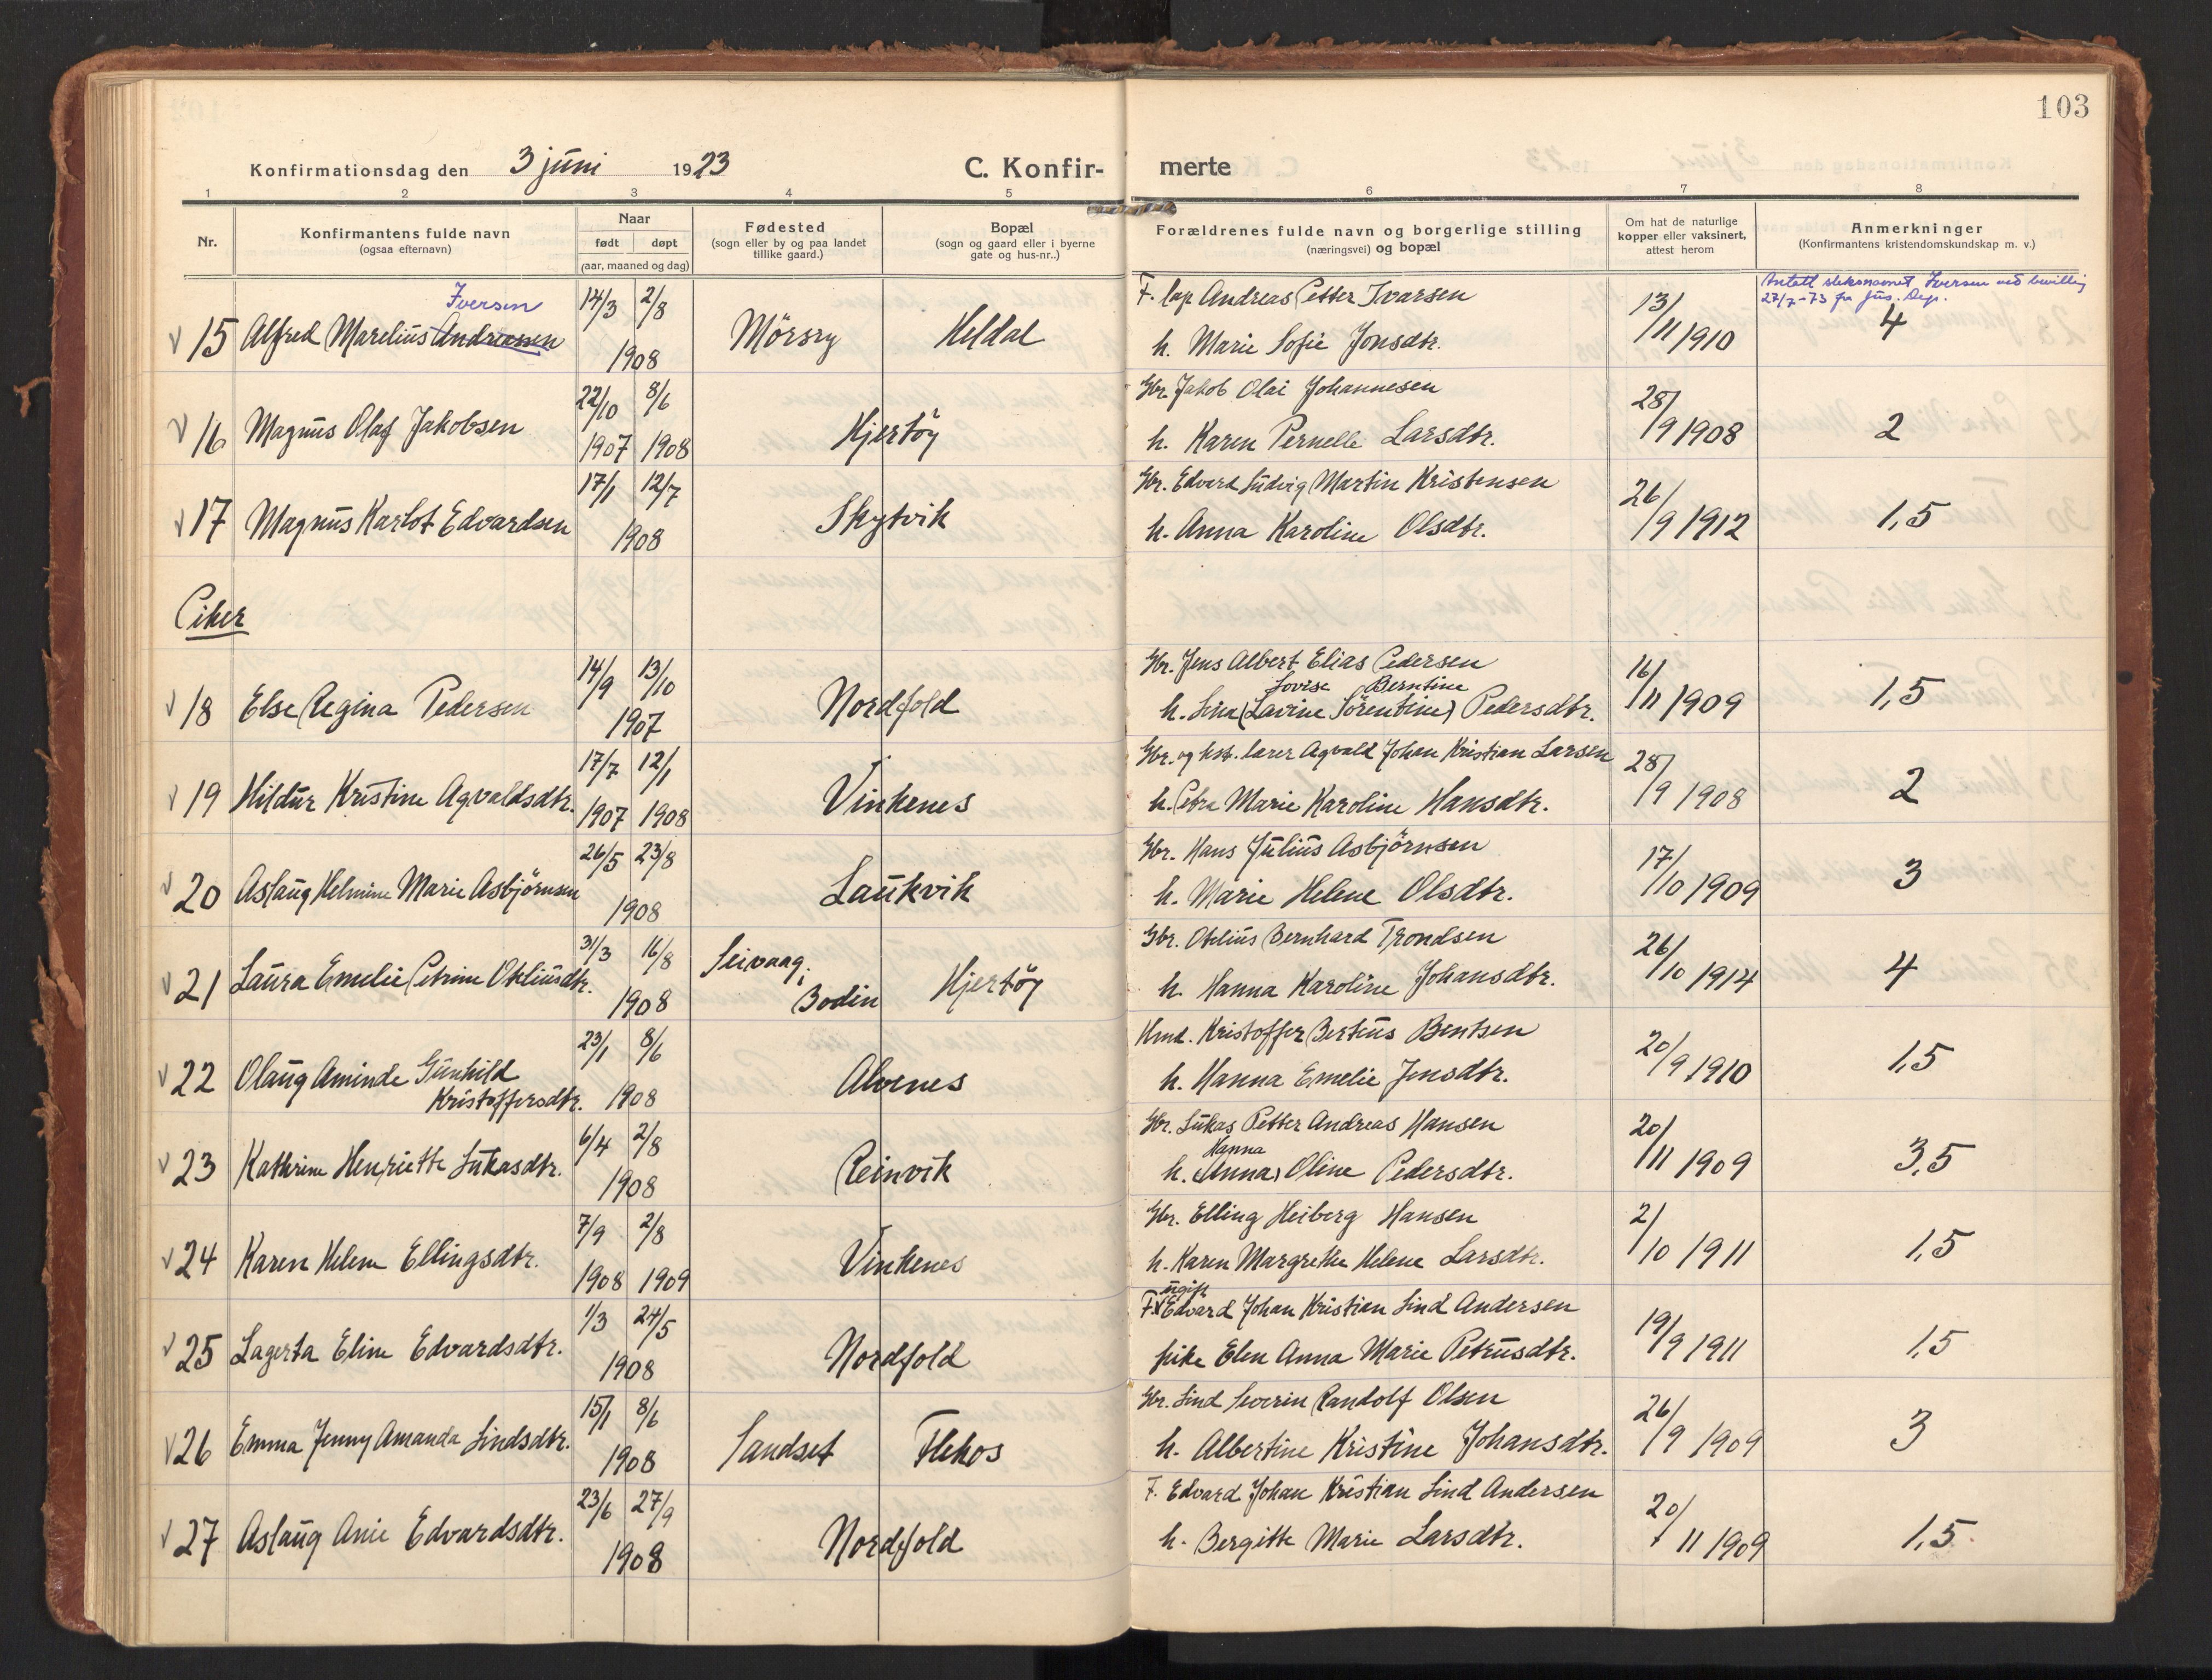 103
Konfirmationsdag den 3 juni 1923
C. Konfir-
merte
1 2 3 4 5 6 7 8
Nr.
Konfirmantens fulde navn
(ogsaa efternavn)
Naar
født døpt
(aar, maaned og dag)
Fødested
(sogn eller by og paa landet
tillike gaard.)
Bopæl
(sogn og gaard eller i byerne
gate og hus-nr..)
Forældrenes fulde navn og borgerlige stilling
(næringsvei) og bopæl
Om hat de naturlige
kopper eller vaksinert,
attest herom
Anmerkninger
(Konfirmantens kristendomskundskap m. v.)
Iversen
15 Alfred Marelius Andreassen 14/3 2/8 1908 Mörsry Heldal
F. lap Andreas Petter Ivarsen
h. Marie Sofie Jonsdtr.
13/11 1910
Antatt slektsnavnet Iversen ved bevilling
27/7-73 fra Jus. Dep.
4
16 Magnus Olaf Jakobsen 22/10 1907 8/6 1908 Kjertöy
Gbr. Jakob Olai Johannesen
h. Karen Pernelle Larsdtr.
28/9 1908 2
17 Magnus Karlot Edvardsen 17/1 12/7 1908 Skytvik
Gbr. Edvard Ludvig Martin Kristensen
h. Anna Karoline Olsdtr.
26/9 1912 1,5
Piker
18 Else Regina Pedersen 14/9 13/10 1907 Nordfold
Gbr. Jens Albert Elias Pedersen
Lovise Berntine
h. Lina (Lavine Sörentine) Pedersdtr.
16/11 1909 1,5
19 Hildur Kristine Agvaldsdtr. 17/7 1907 12/1 1908 Vinkenes
Gbr. og hst. lærer Agvald Johan Kristian Larsen
h. Petra Marie Karoline Hansdtr.
28/9 1908 2
20 Aslaug Helmine Marie Asbjörnsen 26/5 23/8 1908 Laukvik
Gbr. Hans Julius Asbjörnsen
h. Marie Helene Olsdtr.
17/10 1909 3
21 Laura Emelie Petrine Oteliusdtr. 31/3 16/8 1908 Seivaag, Bodin Kjertöy
Gbr. Otelius Bernhard Trondsen
h. Hanna Karoline Johansdtr.
26/10 1914 4
22 Olaug Aminde Gunhild
Kristoffersdtr. 23/1 8/6 1908 Alvenes
Hmd. Kristoffer Berteus Bentsen
h. Hanna Emelie Jensdtr.
20/9 1910 1,5
23 Kathrine Henriette Lukasdtr. 6/4 2/8 1908 Reinvik
Gbr. Lukas Petter Andreas Hansen
Hanna
h. (Anna) Oline Pedersdtr.
20/11 1909 3,5
24 Karen Helene Ellingsdtr. 7/9 1908 2/8 1909 Vinkenes
Gbr. Elling Heiberg Hansen
h. Karen Margrethe Helene Larsdtr.
2/10 1911 1,5
25 Lagerta Eline Edvardsdtr. 1/3 24/5 1908 Nordfold
ugift
F. Edvard Johan Kristian Lind Andersen
pike Elen Anna Marie Petrusdtr.
19/9 1911 1,5
26 Emma Jenny Amanda Lindsdtr. 15/1 8/6 1908 Sandset Flekos
Gbr. Lind Severin Randolf Olsen
h. Albertine Kristine Johansdtr.
26/9 1909 3
27 Aslaug Anie Edvardsdtr. 23/6 27/9 1908 Nordfold
F. Edvard Johan Kristian Lind Andersen
h. Bergitte Marie Larsdtr.
20/11 1909 1,5